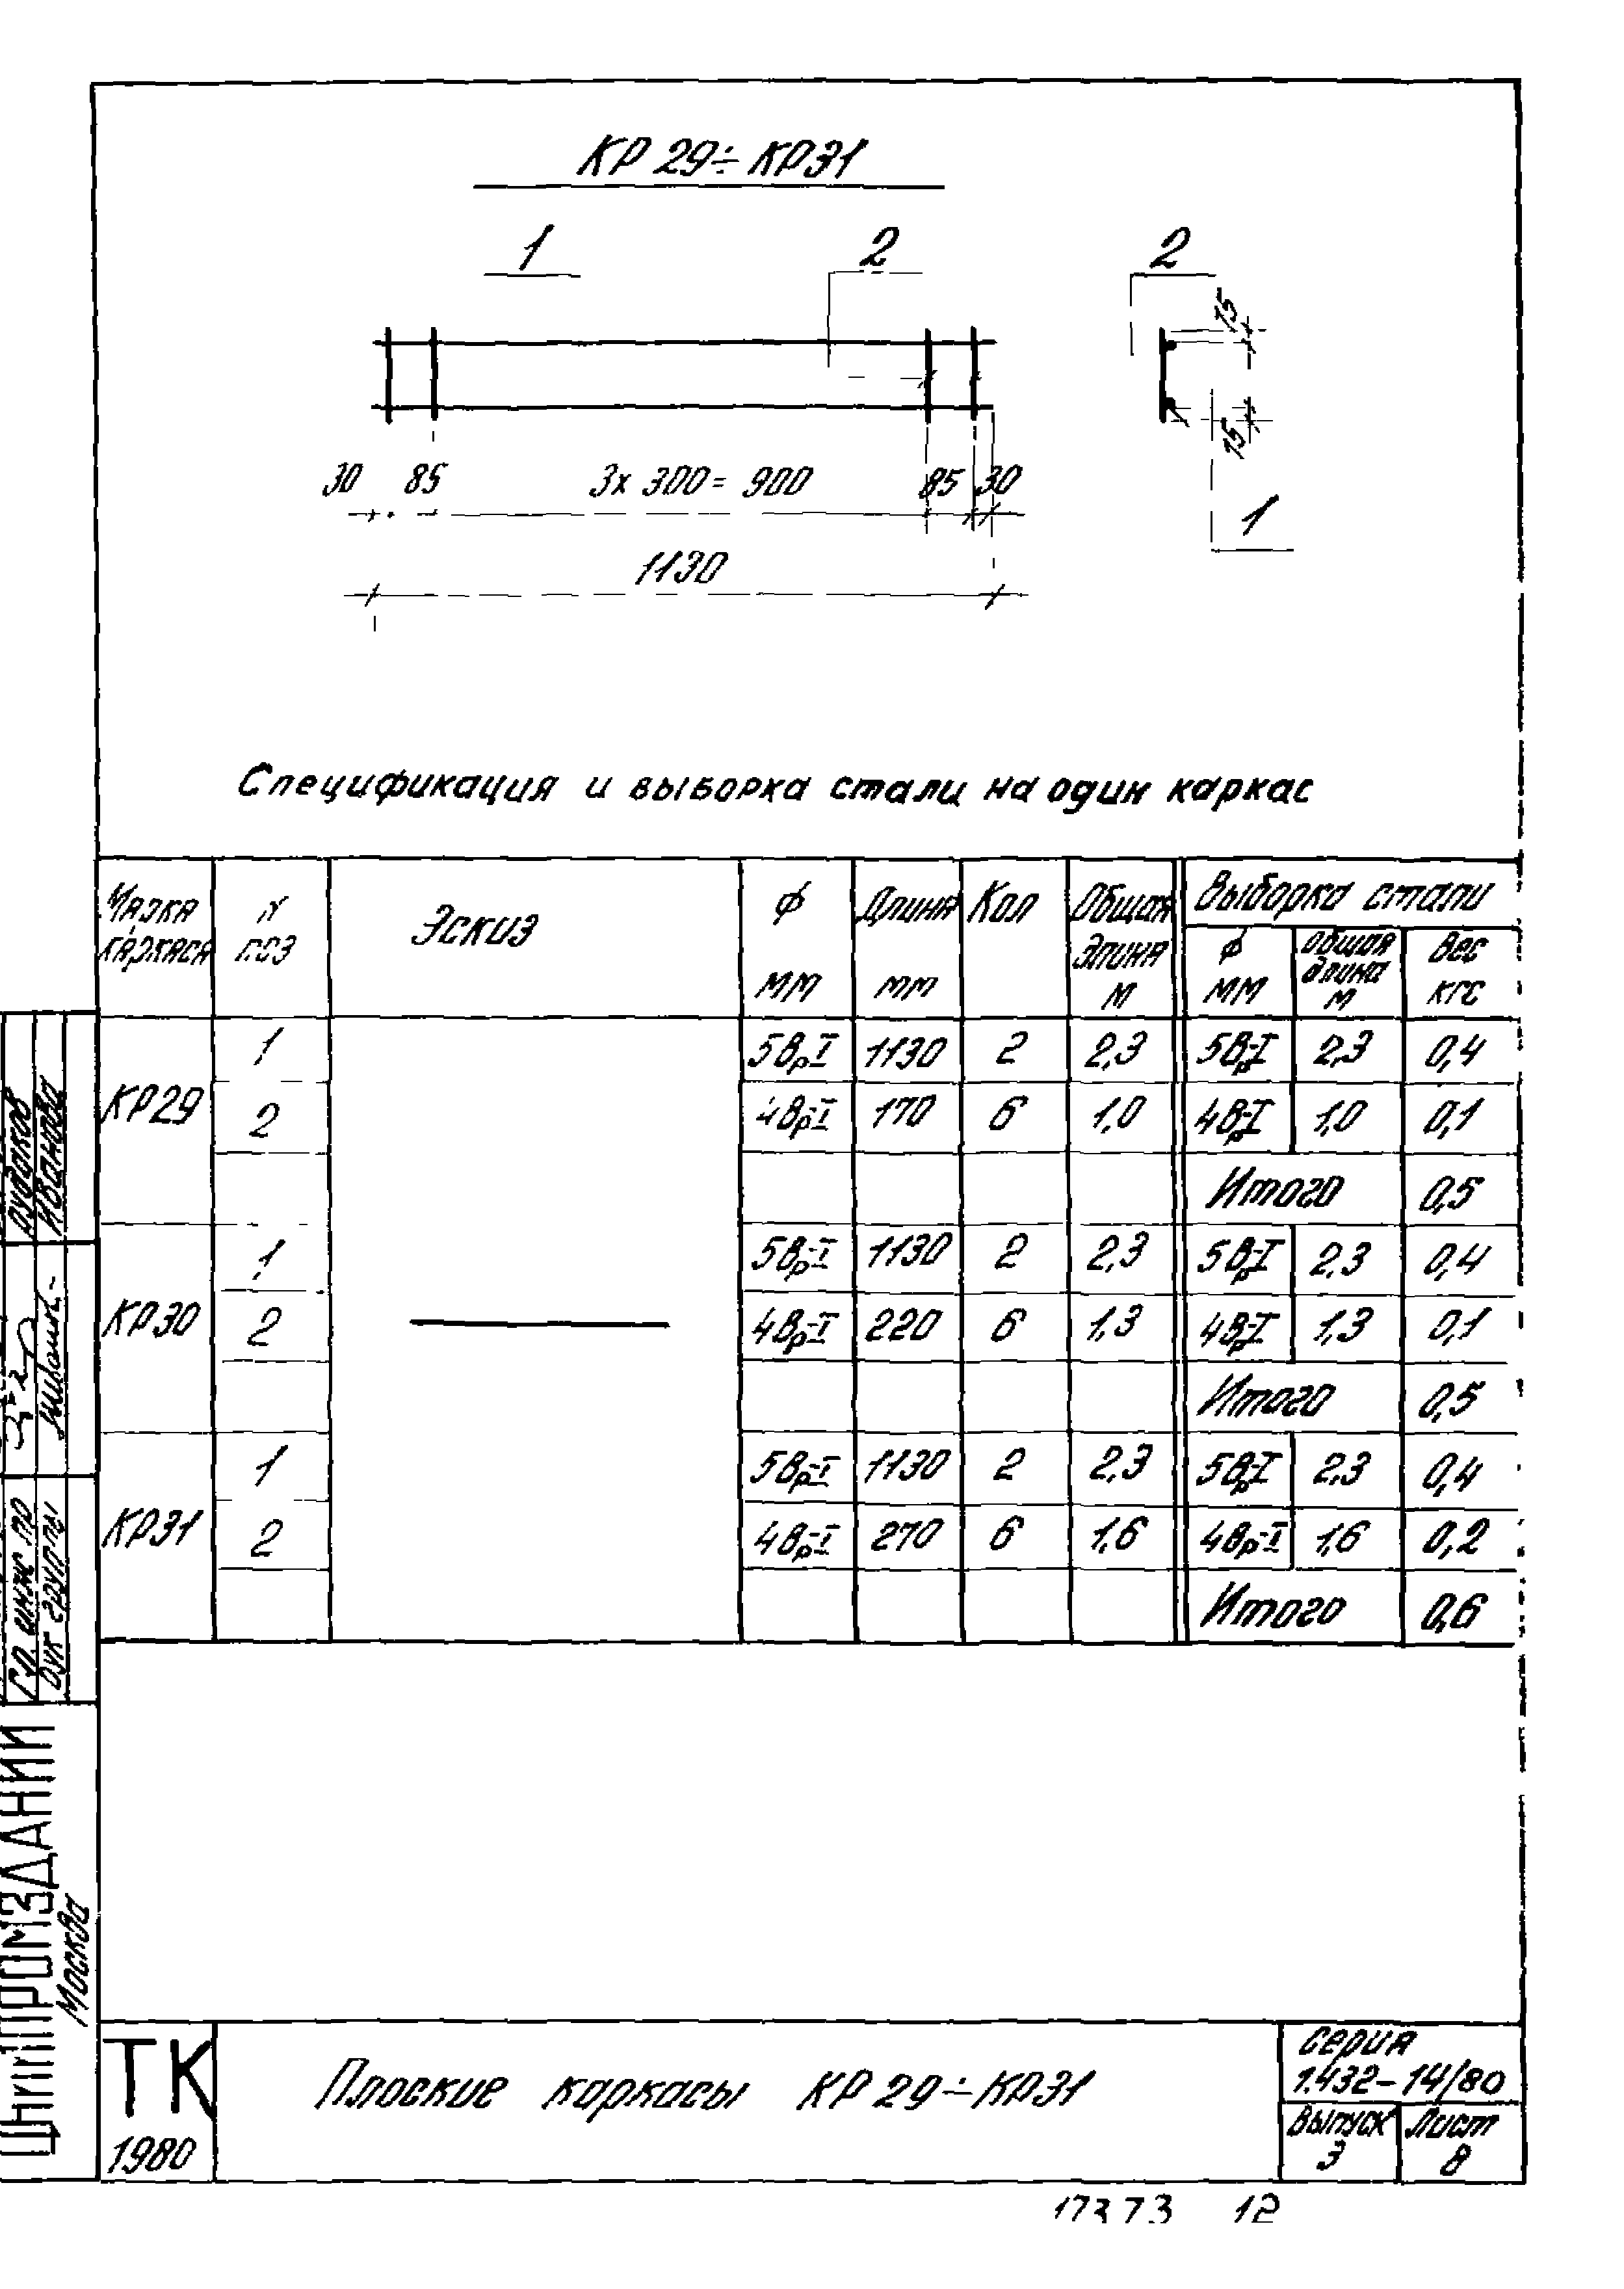 КР 29÷КР31
1 2 2
15
15
30 85 3х 300 = 900 85 30
1
1130
Спецификация и выборка стали на один каркас
Марка каркаса | N поз | Эскиз | ф мм | Длина мм | Кол | Общая длина м | Выборка стали
ф мм | общая длина м | Вес кгс
КР29 | 1 | 5Вр-I | 1130 | 2 | 2,3 | 5Вр-I | 2,3 | 0,4
2 | 4Вр-I | 170 | 6 | 1,0 | 4Вр-I | 1,0 | 0,1
Итого 0,5
КР30 | 1 | 5Вр-I | 1130 | 2 | 2,3 | 5Вр-I | 2,3 | 0,4
2 | 4Вр-I | 220 | 6 | 1,3 | 4Вр-I | 1,3 | 0,1
Итого 0,5
КР31 | 1 | 5Вр-I | 1130 | 2 | 2,3 | 5Вр-I | 2,3 | 0,4
2 | 4Вр-I | 270 | 6 | 1,6 | 4Вр-I | 1,6 | 0,2
Итого 0,6
Гл инж пр
Рук группы Иванова
ЦНИИПРОМЗДАНИЙ
Москва
ТК
1980
Плоские каркасы КР 29÷КР31
Серия
1.432-14/80
Выпуск 3
Лист 8
17373 12